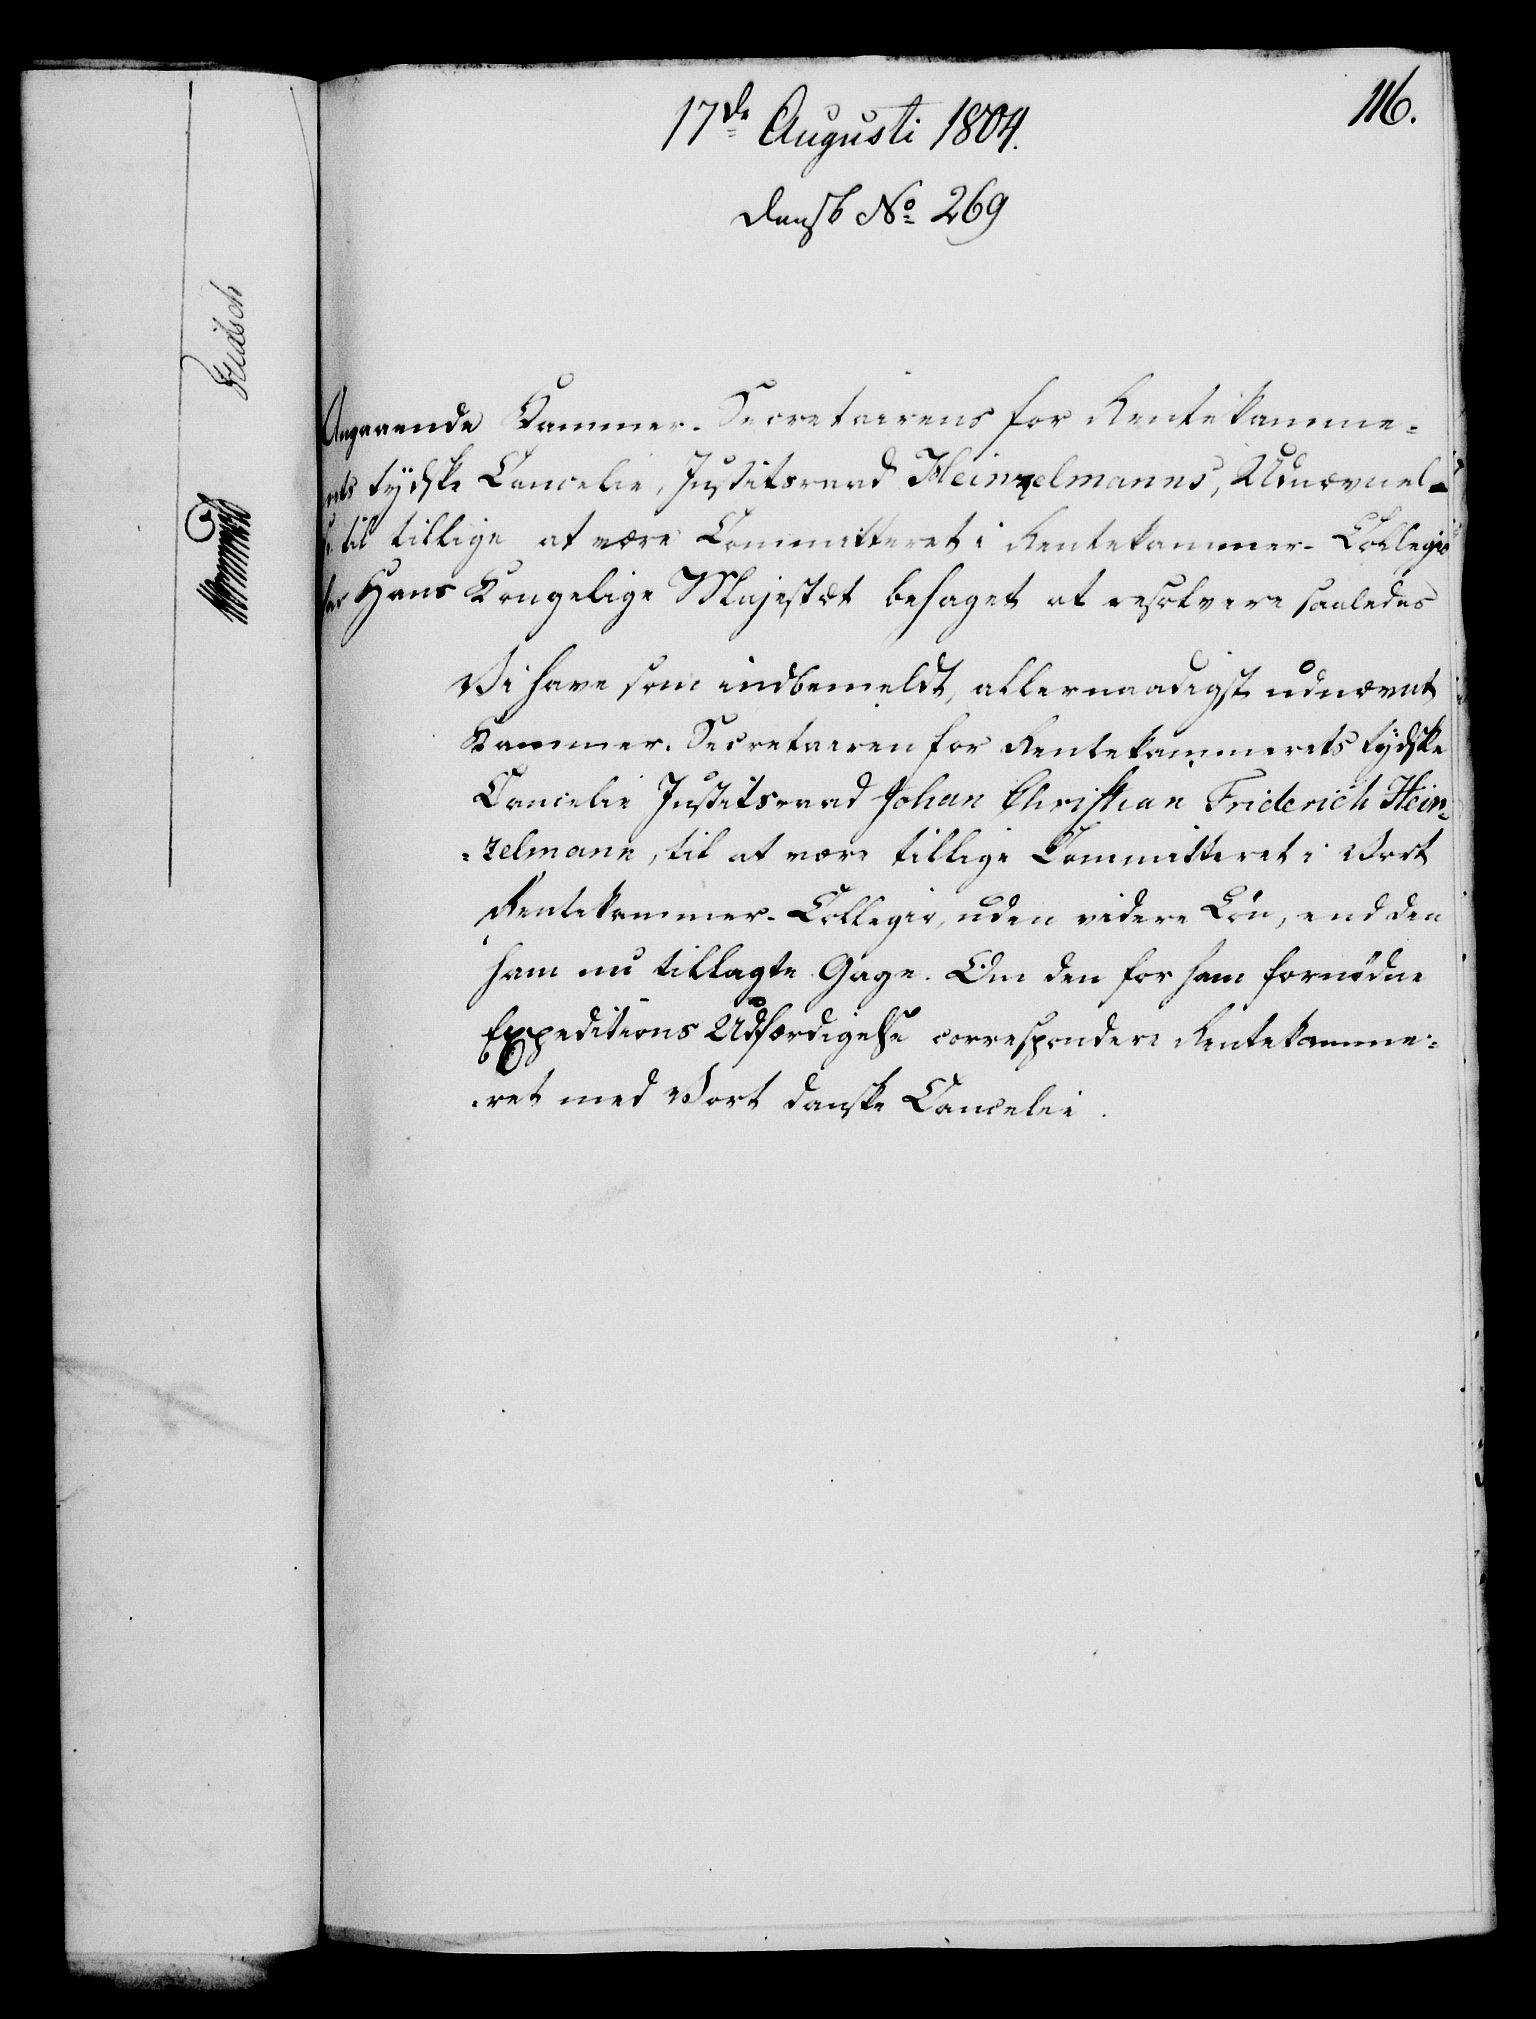 116.
17de Augusti 1804.
Dansk No 269
Angaaende Kammer-Secretairens for Rentekamme=
rets tydske Cancelie, Justitsraad Heinzelmanns, Udnævnel=
se til tillige at være Committeret i Rentekammer-Collegio
har Hans Kongelige Majestæt behaget at resolvere saaledes
Vi have som indbemeldt, allernaadigst udnævnt
Kammer-Secretairen for Rentekammerets tydske
Cancelie Justitsraad Johan Christian Friderich Hein=
=zelmann, til at være tillige Committeret i Vort
Rentekammer-Collegio, uden videre Løn, end den
ham nu tillagte Gage. Om den for ham fornødne
Expeditions Udfærdigelse correspondere Rentekamme=
=ret med Vort danske Cancelie.